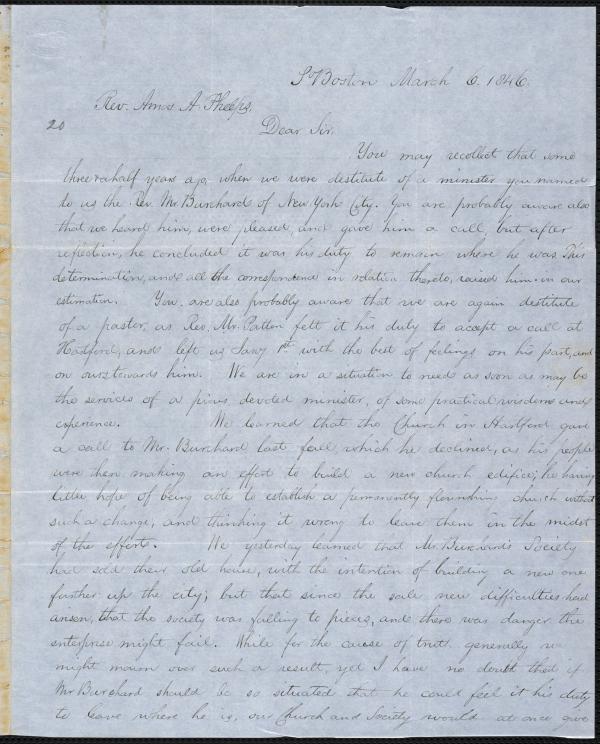 So Boston March 6. 1846.
Rev. Amos A. Phelps,
20
Dear Sir.
You may recollect that some
three & a half years ago, when we were destitute of a minister you named
to us the Rev. Mr. Burchard of New York City. You are probably aware also
that we heard him, were pleased, and gave him a call, but after
reflection, he concluded it was his duty to remain where he was. This
determination, and all the correspondence in relation thereto, raised him in our
estimation. You are also probably aware that we are again destitute
of a pastor, as Rev. Mr. Patton felt it his duty to accept a call at
Hartford, and left us Jany 1st with the best of feelings on his part, and
on ours towards him. We are in a situation to need as soon as may be
the services of a pious, devoted minister, of some practical wisdom and
experience. We learned that the Church in Hartford gave
a call to Mr. Burchard last fall, which he declined, as his people
were then making an effort to build a new church edifice; he having
little hope of being able to establish a permanently flourishing church without
such a change, and thinking it wrong to leave them in the midst
of the efforts. We yesterday learned that Mr. Burchard's Society
had sold their old house, with the intention of building a new one
further up the city; but that since the sale new difficulties had
arisen, that the society was falling to pieces, and there was danger the
enterprise might fail. While for the cause of truth generally we
might mourn over such a result, yet I have no doubt that if
Mr Burchard should be so situated that he could feel it his duty
to leave where he is, our Church and Society would at once give